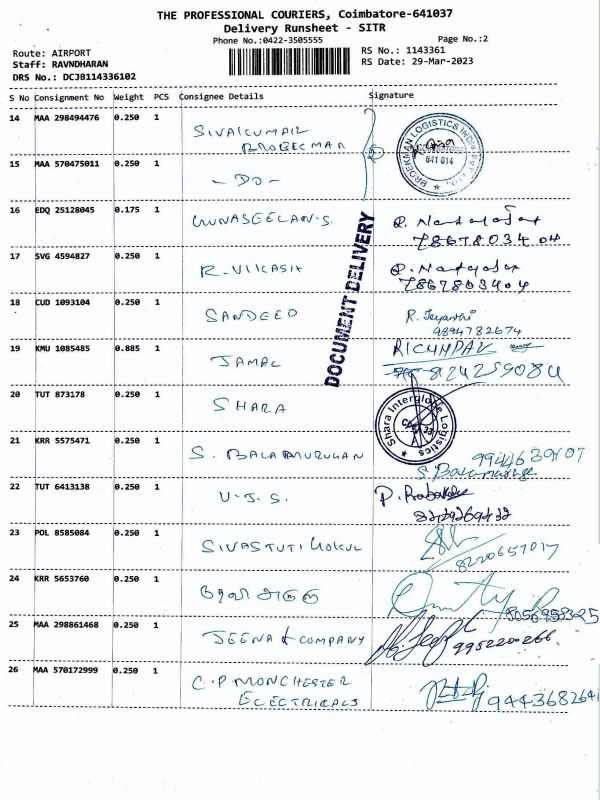 THE PROFESSIONAL COURIERS, Coimbatore-641037
Delivery Runsheet - SITR
Phone No.:0422-3505555 Page No.:2
Route: AIRPORT RS No.: 1143361
Staff: RAVNDHARAN RS Date: 29-Mar-2023
DRS No.: DCJB114336102
S No Consignment No Weight PCS Consignee Details Signature
14 MAA 298494476 0.250 1 SIVAKUMAR
BROEKMAN
BROEKMAN LOGISTICS INDIA PVT. LTD.
641 014
15 MAA 570475011 0.250 1 - DO -
16 EDQ 25128045 0.175 1 GUNASEELAN. S.
17 SVG 4594827 0.250 1 R. VIKASH
7867803404
DOCUMENT DELIVERY
18 CUD 1093104 0.250 1 SANDEED R. Jeyanthi
9894782674
19 KMU 1085485 0.885 1 JAMAL
20 TUT 873178 0.250 1 SHARA
Shara Interglobe Logistics
21 KRR 5575471 0.250 1 S. BALAMURUGAN
S. Balamuruga
22 TUT 6413138 0.250 1 V. J. S. P. Prabakar
23 POL 8585084 0.250 1 SIVASTUTI GOKUL
8220657017
24 KRR 5653760 0.250 1
25 MAA 298861468 0.250 1 JEENA & COMPANY
9952200266
26 MAA 570172999 0.250 1 C. P MONCHESTER
ELECTRICALS